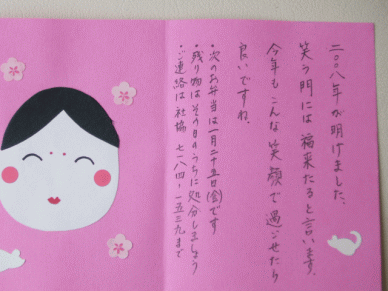 二〇〇八年が明けました。
笑う門には福来たると言います。
今年もこんな笑顔で過ごせたら
良いですね。
・次のお弁当は一月二十五日(金)です
・残り物はその日のうちに処分しましょう
・ご連絡は社協 七一八四-一五三九まで